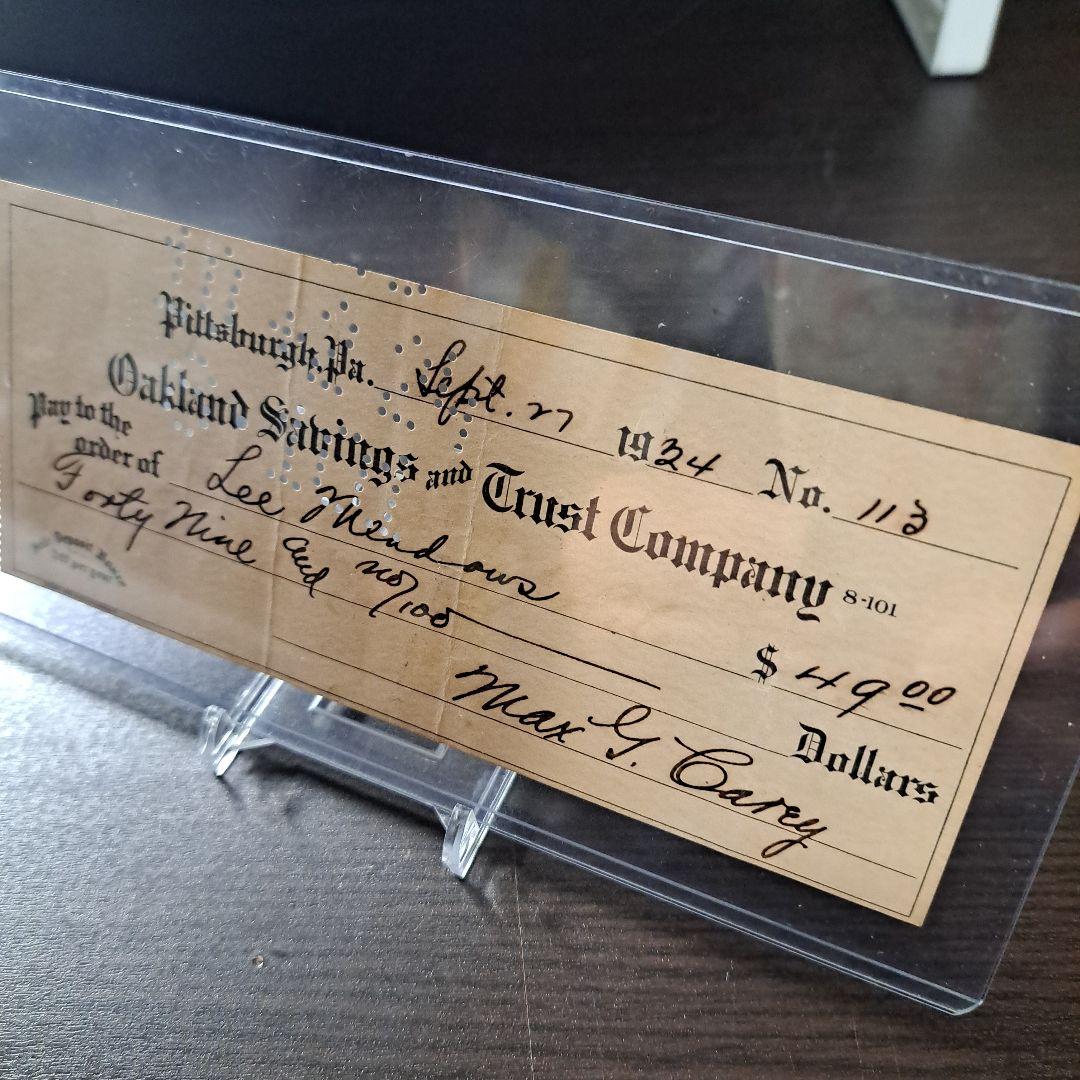 Pittsburgh, Pa. Sept. 27 1924 No. 113
Oakland Savings and Trust Company 8-101
Pay to the order of Lee Meadows $ 49 00
Forty Nine and no/100 Dollars
Max G. Carey
Deposit
per year